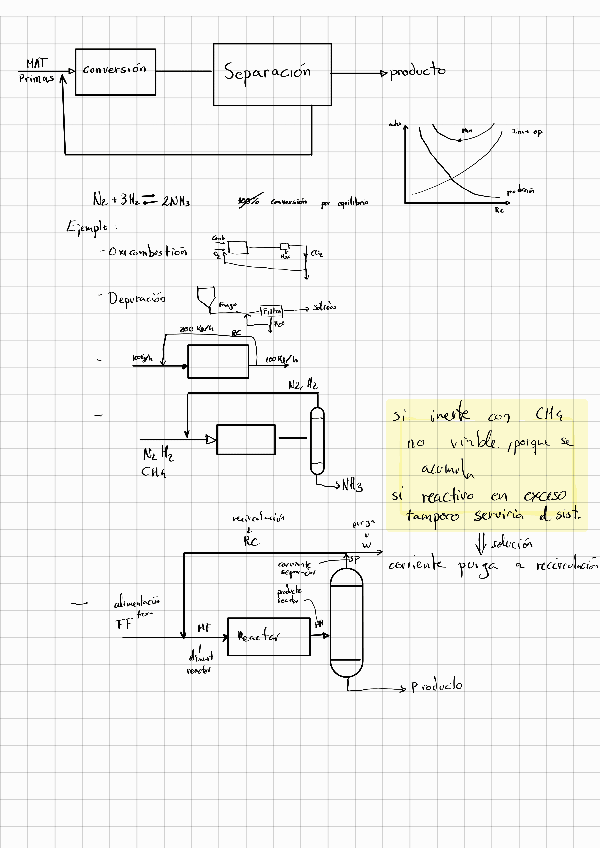 MAT
Primas
Conversión
Separación
producto
Min
Inv + op
producción
RC
N2 + 3H2 ⇌ 2NH3
100% conversión por equilibrio
Ejemplo.
- Oxicombustión
Comb
O2
H2O
CO2
- Depuración
Fango
Filtro
sólido
Rec
200 Kg/h
RC
100Kg/h
100 Kg/h
N2, H2
N2 H2
CH4
NH3
si inerte con CH4
no viable, porque se
acumula
si reactivo en exceso
tampoco serviria el sist.
⇓ solución
corriente purga a recirculación
recirculación
RC
purga
W
corriente
separación
SP
producto
reactor
alimentación
FF
MF
reactor
Reactor
Producto